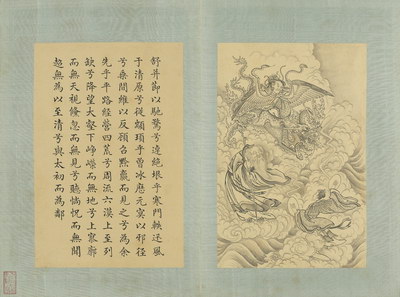 舒并節以馳騖兮逴絕垠乎寒門軼迅風
于清原兮從顓頊乎曾冰歷元冥以邪徑
兮乘間維以反顧召黔羸而見之兮為余
先乎平路經營四荒兮周流六漠上至列
缺兮降望大壑下崢嶸而無地兮上寥廓
而無天視儵忽而無見兮聽惝怳而無聞
超無為以至清兮與太初而為鄰